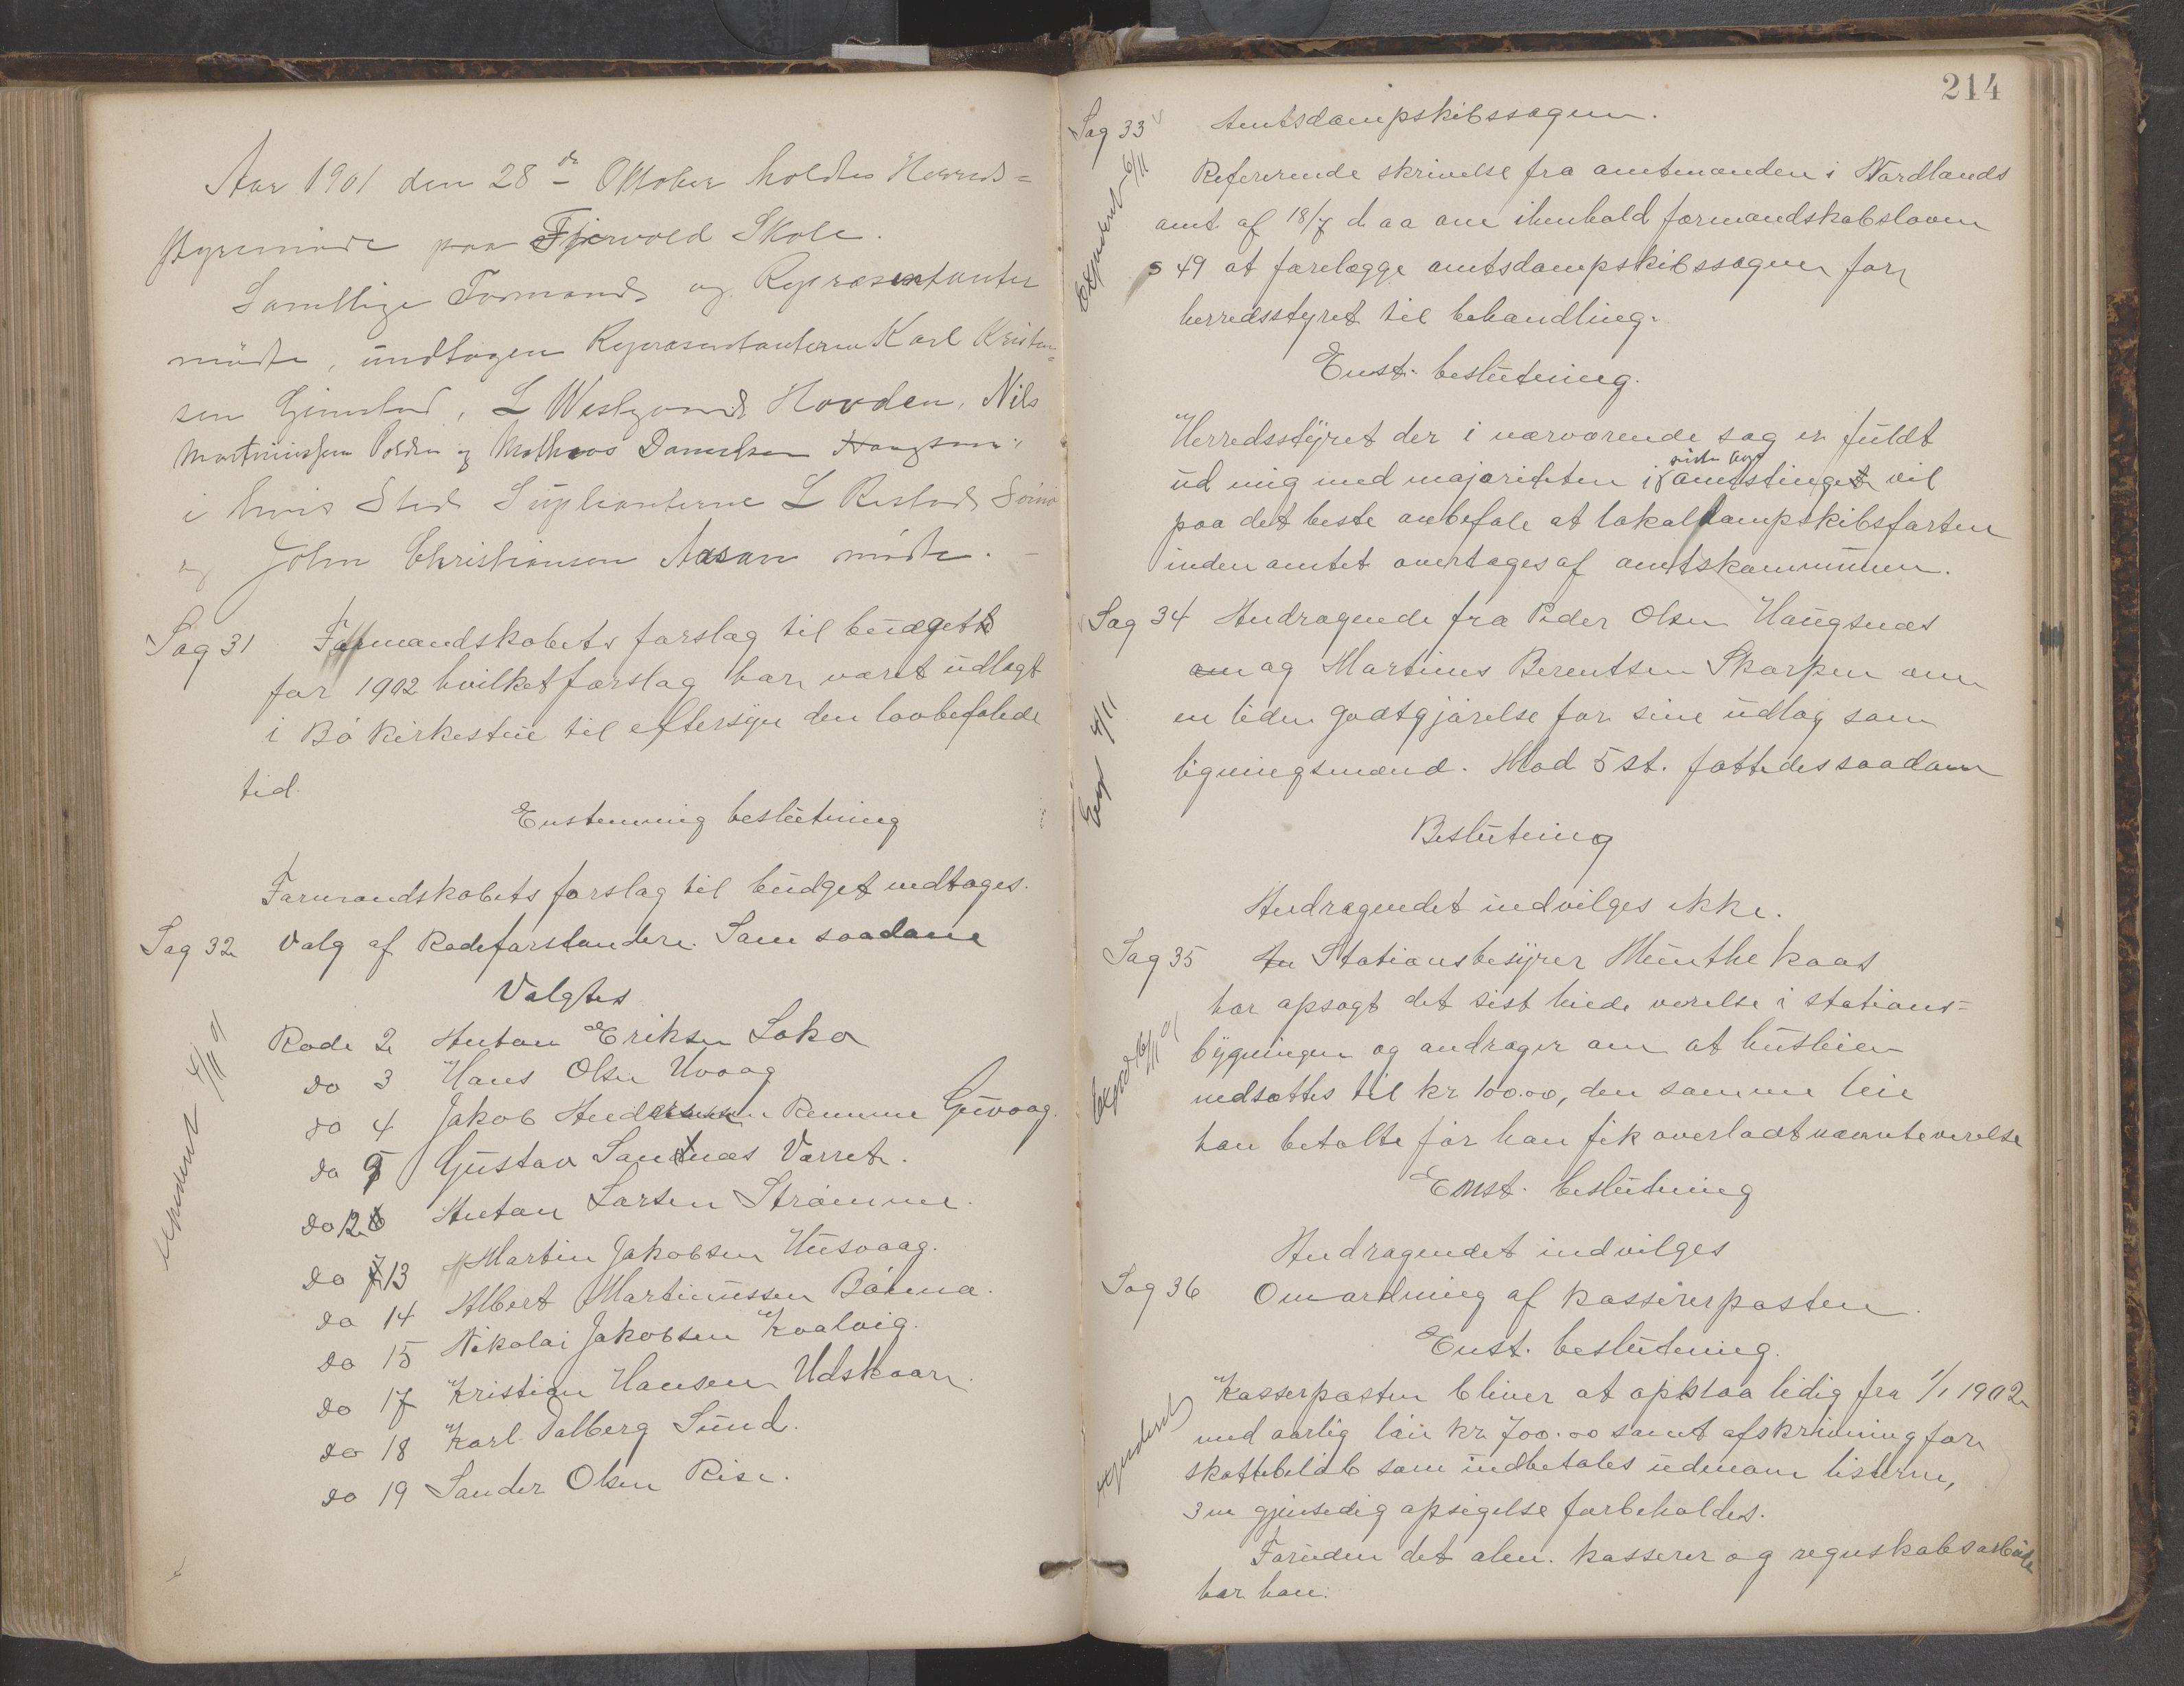 Aar 1901 den 28de Oktober holdtes Herreds=
styremöde paa Fjærvold Skole.
Samtlige Formænd og Repræsentanter
mödte, undtagen Repræsentanterne Karl Kristen=
sen Gimstad, L Westgaard Hovden, Nils
Martinussen Polden og Mathias Danielsen
i hvis Sted Suplianterne L Ristad
og John Christiansen Aasan mödte.
Sag 31 Formandskabets forslag til budgett
for 1902 hvilket forslag har været udlagt
i Bö kirkestue til eftersyn den lovbefalede
tid.
Enstemmig beslutning
Formandskabets forslag til budget vedtages.
Sag 32 Valg af Rodeforstandere. Som saadane
Valgtes
Expederet 4/11 01
Rode 2 Anton Eriksen Hoka
do 3 Hans Olsen Uvaag
do 4 Jakob Andersen Remme Guvaag.
do 9 Gustav Sandnæs Værret.
do 12 Anton Larsen Strömme.
do 13 Martin Jakobsen Husvaag.
do 14 Albert Martinussen Bömma.
do 15 Nikolai Jakobsen Kvalvig.
do 17 Kristian Hansen Udskaar.
do 18 Karl Dalberg Sund.
do 19 Sander Olsen Rise.
214
Sag 33 Amtsdampskibssagen.
Expederet 6/11
Refererende skrivelse fra amtmanden i Nordlands
amt af 18/7 d aa om ihenhold formandskabsloven
§ 49 at forelægge amtsdampskibssagen for
herredsstyret til behandling.
Enst. beslutning.
Herredsstyret der i nærværende sag er fuldt
ud enig med majoriteten i sidste aars amtstinget vil
paa det beste anbefale at lokaldampskibsfarten
inden amtet overtages af amtskommunen.
Sag 34 Andragende fra Peder Olsen Haugsnæs
om og Martinus Berentsen Skarpen om
Exp 4/11
en liden godtgjörelse for sine udlæg som
ligningsmænd. Mod 5 st. fattedes saadan
Beslutning
Andragendet indvilges ikke.
Sag 35 An Stationsbestyrer Münthe Kaas
har opsagt det sist leiede værelse i stations=
Exped 6/11 01
bygningen og andrager om at husleien
nedsættes til kr 100.00, den samme leie
han betalte för han fik overladt nævnte værelse
Enst. beslutning
Andragendet indvilges
Sag 36 Omordning af kassererposten.
Enst. beslutning.
Kasserposten bliver at opslaa ledig fra 1/1 1902
Expederet
med aarlig lön kr 700.00 samt afskrivning for
skattebelöb som indbetales udenom listerne,
3 m gjensidig opsigelse forbeholdes.
Foruden det alm. kasserer og regnskabsarbeide
har han: